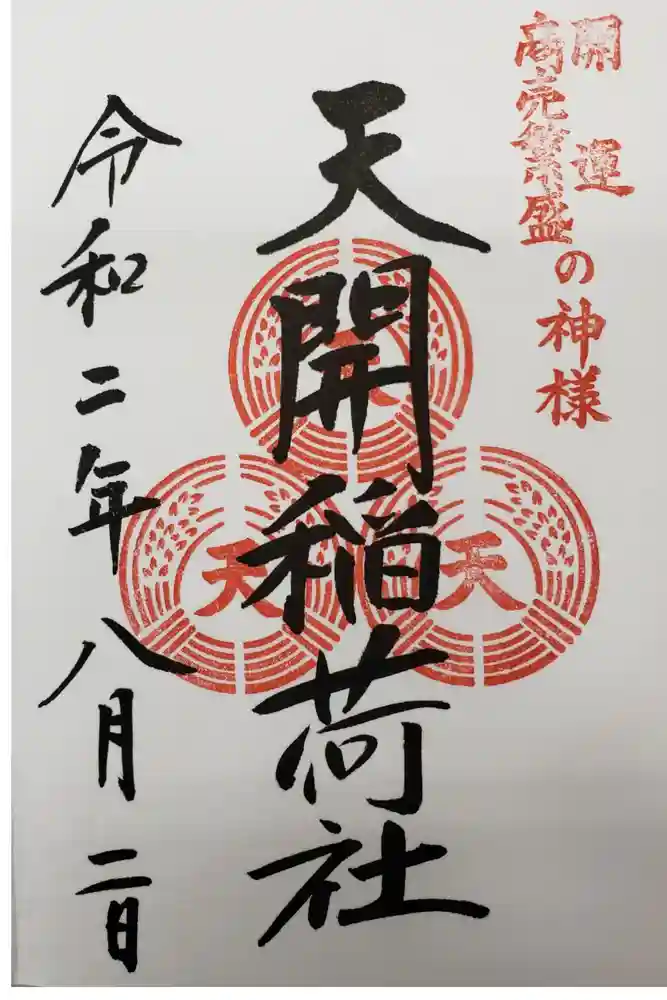 開運
商売繁盛
の神様
天開稲荷社
天
天
天
令和二年八月二日